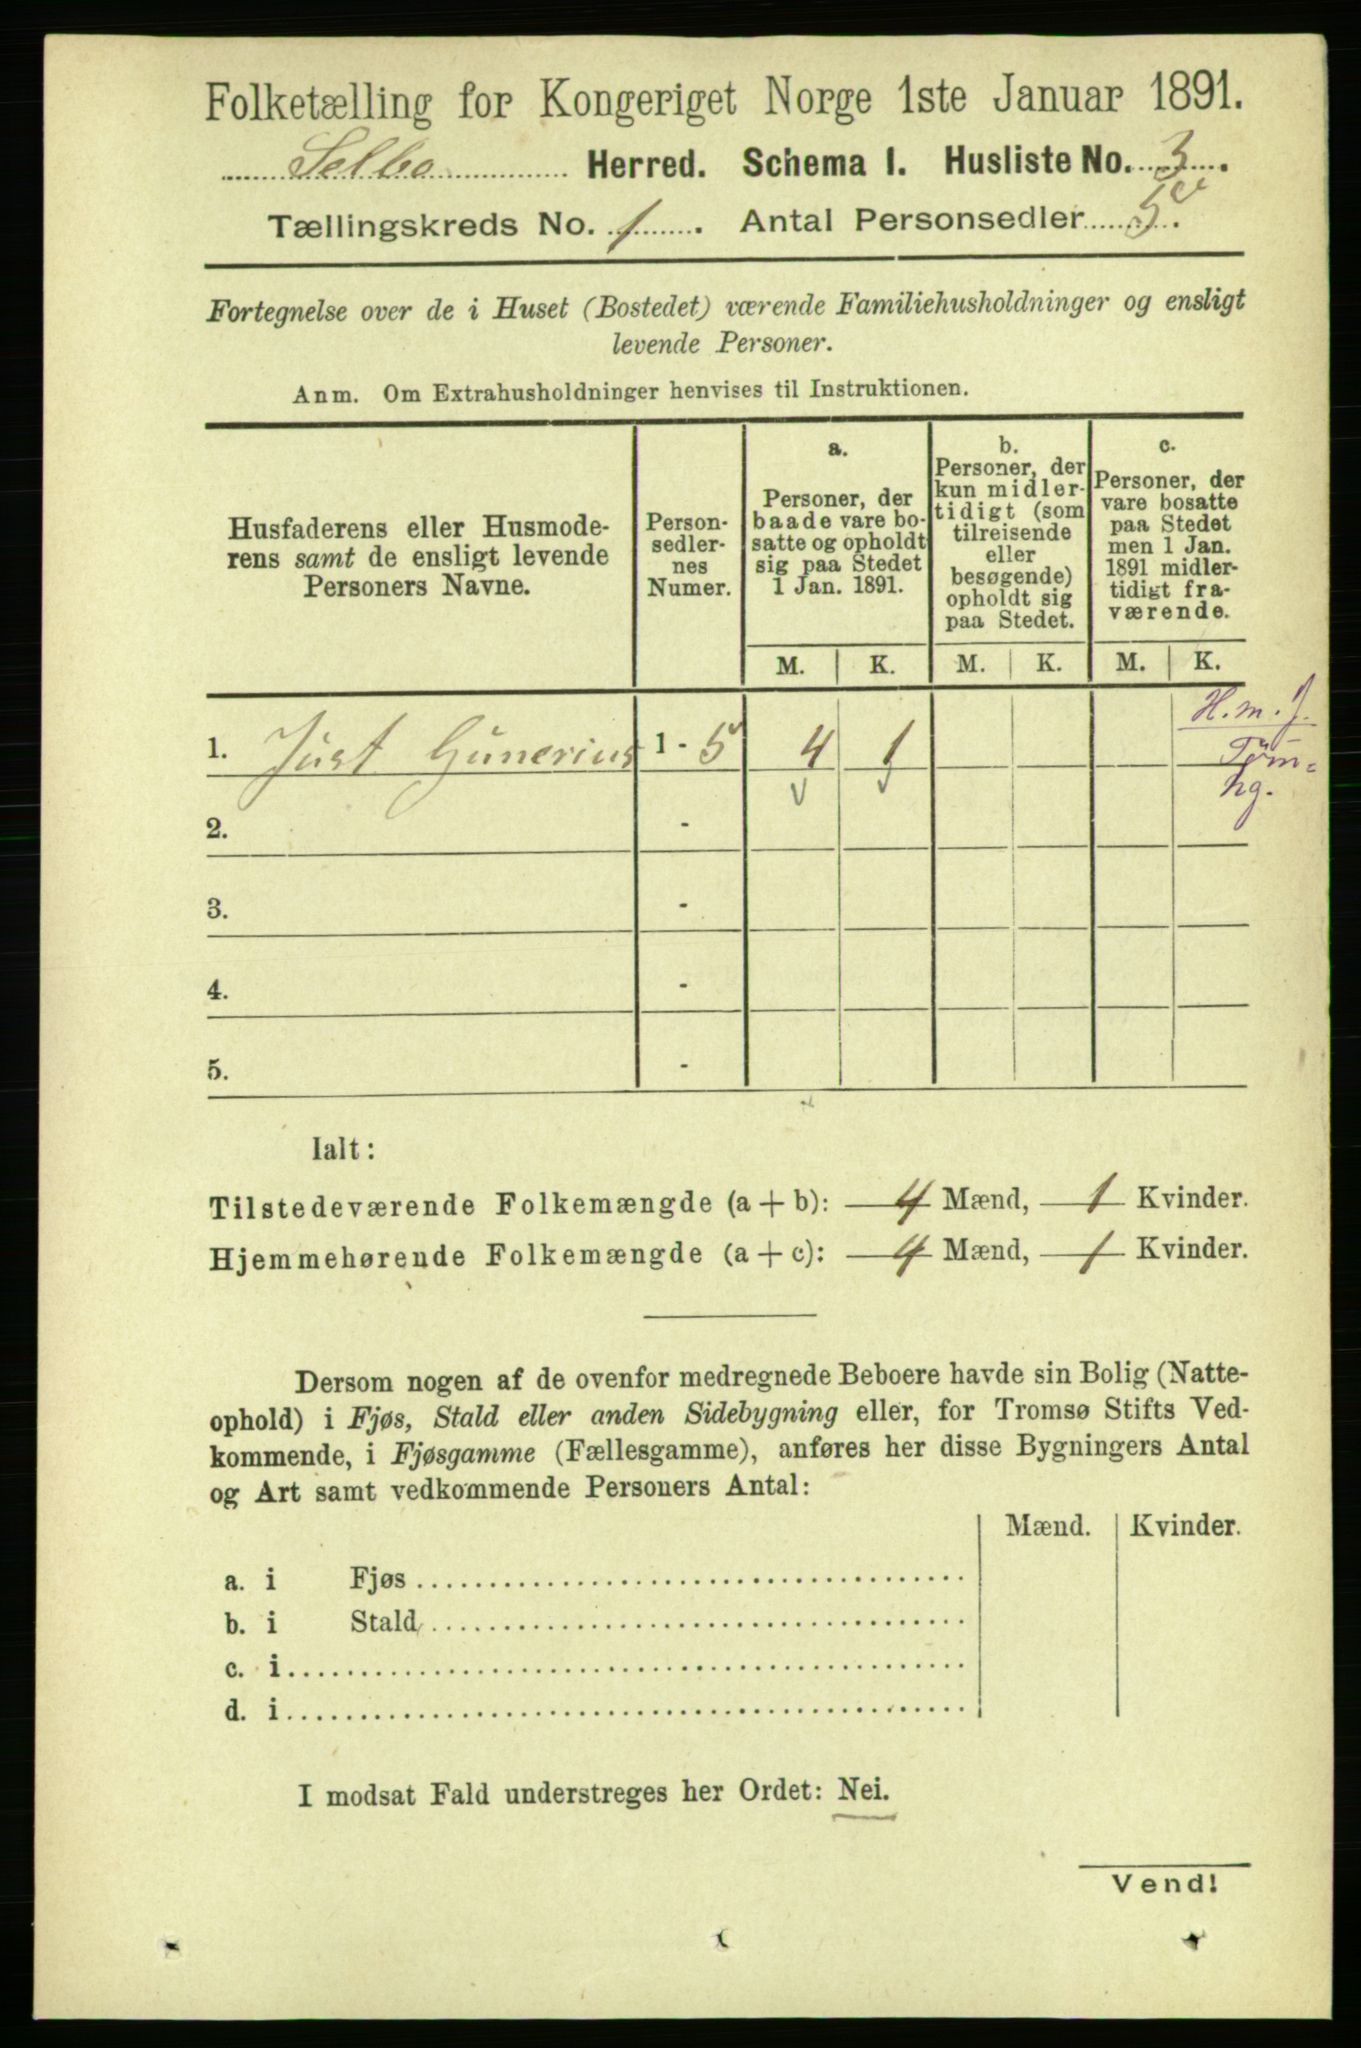 Folketælling for Kongeriget Norge 1ste Januar 1891.
Selbo Herred. Schema I. Husliste No. 3.
Tællingskreds No. 1. Antal Personsedler 5.
Fortegnelse over de i Huset (Bostedet) værende Familiehusholdninger og ensligt
levende Personer.
Anm. Om Extrahusholdninger henvises til Instruktionen.
Husfaderens eller Husmode-
rens samt de ensligt levende
Personers Navne.
Person-
sedler-
nes
Numer.
a.
Personer, der
baade vare bo-
satte og opholdt
sig paa Stedet
1 Jan. 1891.
b.
Personer, der
kun midler-
tidigt (som
tilreisende
eller
besøgende)
opholdt sig
paa Stedet.
c.
Personer, der
vare bosatte
paa Stedet
men 1 Jan.
1891 midler-
tidigt fra-
værende.
M. K. M. K. M. K.
H. m. f.
1. Just Gunerius 1 - 5 4 1
hg.
2. -
3. -
4. -
5. -
Ialt:
Tilstedeværende Folkemængde (a + b): 4 Mænd, 1 Kvinder.
Hjemmehørende Folkemængde (a + c): 4 Mænd, 1 Kvinder.
Dersom nogen af de ovenfor medregnede Beboere havde sin Bolig (Natte-
ophold) i Fjøs, Stald eller anden Sidebygning eller, for Tromsø Stifts Ved-
kommende, i Fjøsgamme (Fællesgamme), anføres her disse Bygningers Antal
og Art samt vedkommende Personers Antal:
Mænd. Kvinder.
a. i Fjøs
b. i Stald
c. i
d. i
I modsat Fald understreges her Ordet: Nei.
Vend!